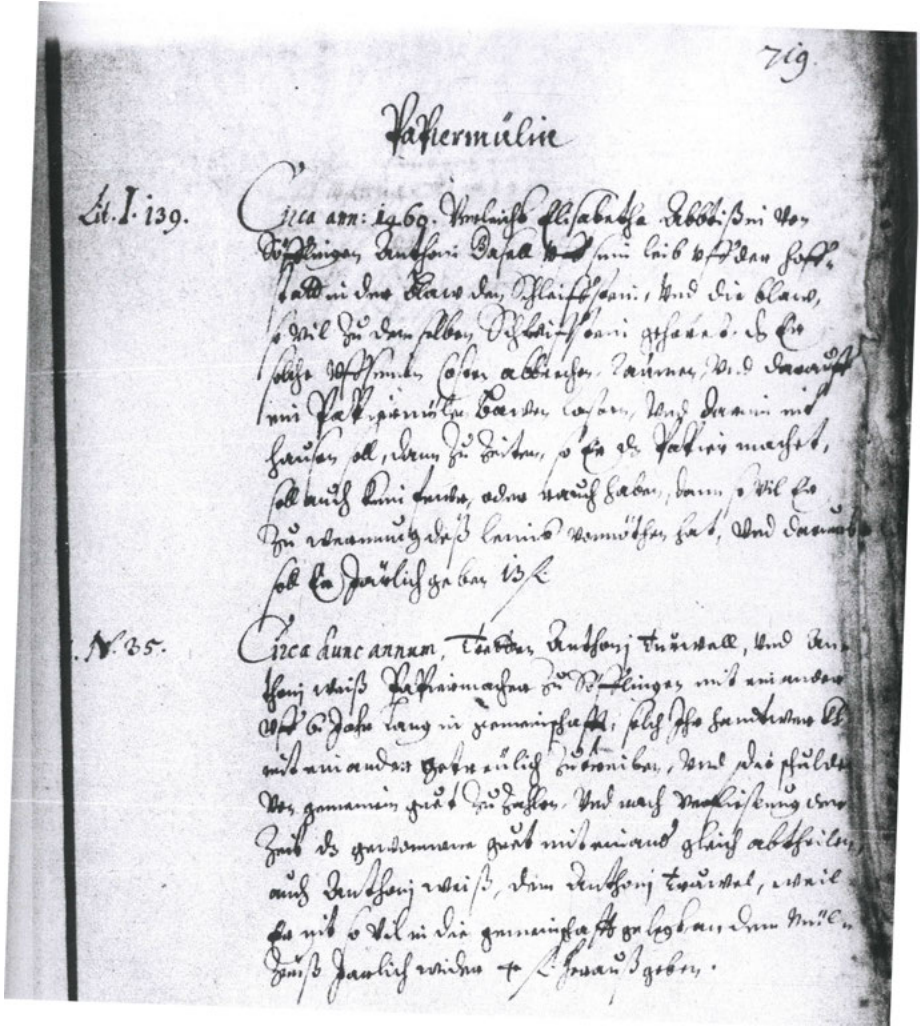 719.
Papiermülin
Lit. I. 139.
Circa ann: 1469. Verleicht Elisabetha Abbtißin von
Söfflingen Anthoni Basell sein leib vff der hoff-
statt in der Blaw den Schleiffstein, vnd die blaw,
so vil zu dem selben Schleiffstein gehöret. ds Er
solche abbrechen, raumen, vnd darauff
ein Papiermülin Bawen lassen, vnd darin nit
hausen soll, dann zu Zeiten, so Er ds Papier machet,
soll auch kein fewr, oder rauch haben, dann so vil Er
zu wermung deß leims vonnöthen hat, vnd darumb
soll Er Järlich geben 13 fl
N. 35.
Circa hunc annum, Tretten Anthonj Turwell, vnd An-
thonj weiß Papiermacher zu Söfflingen mit einander
vff 6 Jahr lang in gemeinschafft, solch Ihr handtwerckh
mit einander getreülich zutreiben, vnd die schulden
von gemeinem guet zu zahlen, vnd nach verfließung der
Zeit ds gewonnene guet mit einand gleich abtheilen,
auch Anthonj weiß, dem Anthonj Truwel, weil
Er nit so vil in die gemeinschafft gelegt, an dem Mül-
Zinß Jarlich wider fl. herauß geben.